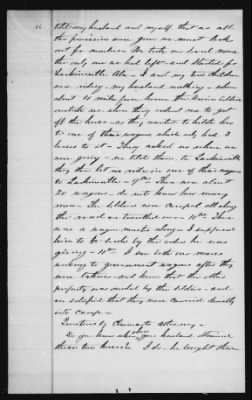 told my husband and myself that as all
the provisions were gone we must look
out for ourselves. We took our
the only one we had left and started for
Larkinsville Ala - I and my two children
were riding, my husband walking - when
about 4 miles from home the Union soldiers
met us and they ordered me to get
off the horse as they wanted to hitch her
to one of their wagons which only had 3
horses to it - They asked us where we
were going - we told them to Larkinsville
they then let us ride in one of their wagons
to Larkinsville - 9th There were about
30 wagons - do not know how many
men - The soldiers were camped all along
the road as we travelled - 10th There
was a wagon master along - I supposed
him to be such by the orders he was
giving - 11th I saw both our mares
working to government wagons after they
were taken and know that the other
property was used by the soldiers - and
am satisfied that they were carried directly
into camp -
Questions by Claimant's attorney -
Do you know when your husband obtained
these two horses? I do - he bought them